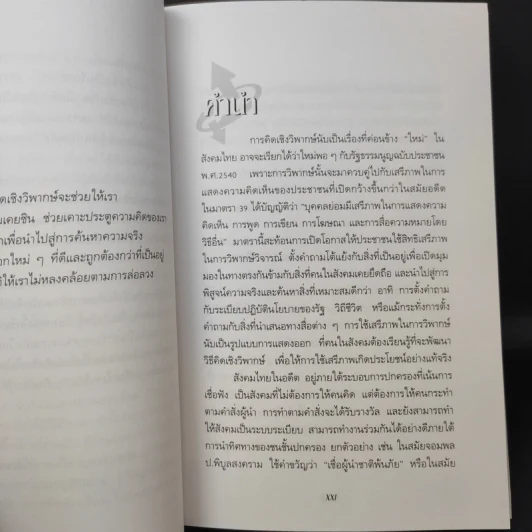 ดเชิงวิพากษ์จะช่วยให้เรา
มเคยชิน ช่วยเคาะประตูความคิดของเรา
าเพื่อนำไปสู่การค้นหาความจริง
อกใหม่ ๆ ที่ดีและถูกต้องกว่าที่เป็นอยู่
ให้เราไม่หลงคล้อยตามการล่อลวง
คำนำ
การคิดเชิงวิพากษ์นับเป็นเรื่องที่ค่อนข้าง “ใหม่” ใน
สังคมไทย อาจจะเรียกได้ว่าใหม่พอ ๆ กับรัฐธรรมนูญฉบับประชาชน
พ.ศ.2540 เพราะการวิพากษ์นั้นจะมาควบคู่ไปกับเสรีภาพในการ
แสดงความคิดเห็นของประชาชนที่เปิดกว้างขึ้นกว่าในสมัยอดีต
ในมาตรา 39 ได้บัญญัติว่า “บุคคลย่อมมีเสรีภาพในการแสดงความ
คิดเห็น การพูด การเขียน การโฆษณา และการสื่อความหมายโดย
วิธีอื่น” มาตรานี้สะท้อนการเปิดโอกาสให้ประชาชนใช้สิทธิเสรีภาพ
ในการวิพากษ์วิจารณ์ ตั้งคำถามโต้แย้งกับสิ่งที่เป็นอยู่เพื่อเปิดมุม
มองในทางตรงกันข้ามกับสิ่งที่คนในสังคมเคยยึดถือ และนำไปสู่การ
พิสูจน์ความจริงและค้นหาสิ่งที่เหมาะสมดีกว่า อาทิ การตั้งคำถาม
กับระเบียบปฏิบัตินโยบายของรัฐ วิถีชีวิต หรือแม้กระทั่งการตั้ง
คำถามกับสิ่งที่นำเสนอทางสื่อต่าง ๆ การใช้เสรีภาพในการวิพากษ์
นับเป็นรูปแบบการแสดงออก ที่คนในสังคมต้องเรียนรู้ที่จะพัฒนา
วิธีคิดเชิงวิพากษ์ เพื่อให้การใช้เสรีภาพเกิดประโยชน์อย่างแท้จริง
สังคมไทยในอดีต อยู่ภายใต้ระบอบการปกครองที่เน้นการ
เชื่อฟัง เป็นสังคมที่ไม่ต้องการให้คนคิด แต่ต้องการให้คนกระทำ
ตามคำสั่งผู้นำ การทำตามคำสั่งจะได้รับรางวัล และยังสามารถทำ
ให้สังคมเป็นระบบระเบียบ สามารถทำงานร่วมกันได้อย่างดีภายใต้
การนำทิศทางของชนชั้นปกครอง ยกตัวอย่าง เช่น ในสมัยจอมพล
ป.พิบูลสงคราม ใช้คำขวัญว่า “เชื่อผู้นำชาติพ้นภัย” หรือในสมัย
XXI